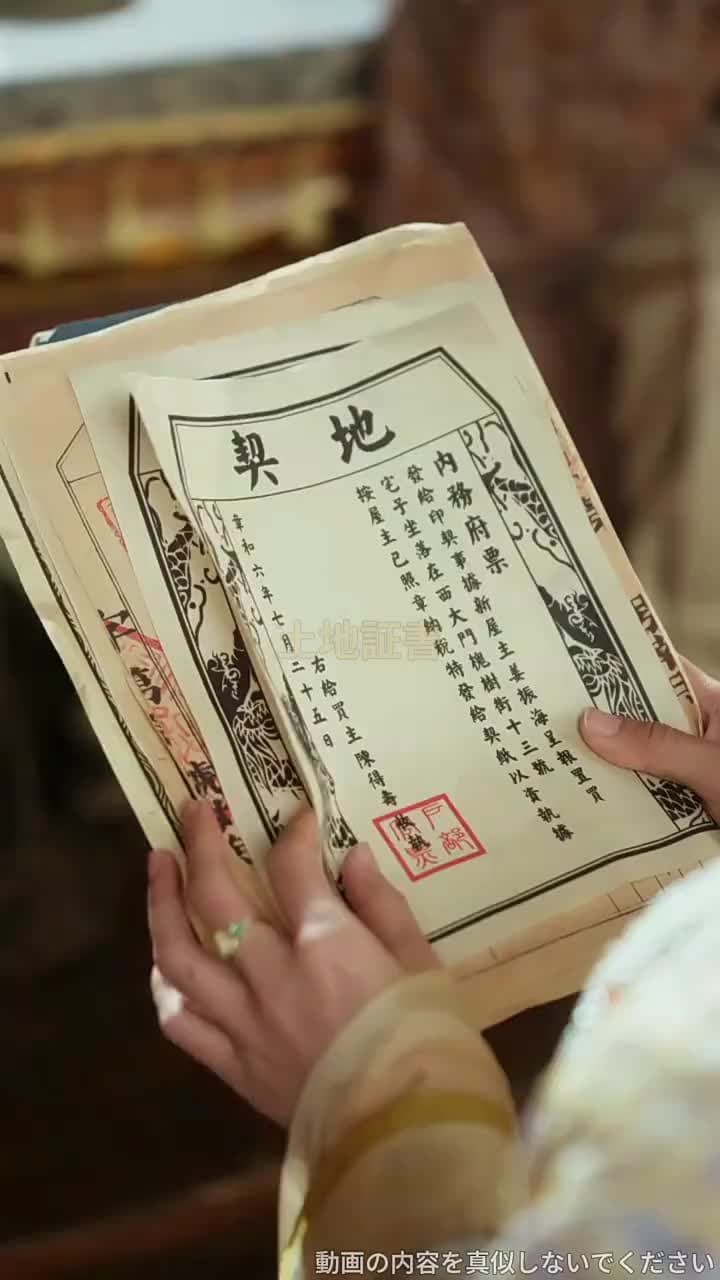 地契
內務府票
發給印契事據新屋主姜振海呈報置買
宅子坐落在西大門槐樹街十三號以資執據
按屋主已照章納稅特發給契紙
右給買主陳得壽收執
章和六年七月二十五日
戶部
土地証書
動画の内容を真似しないでください